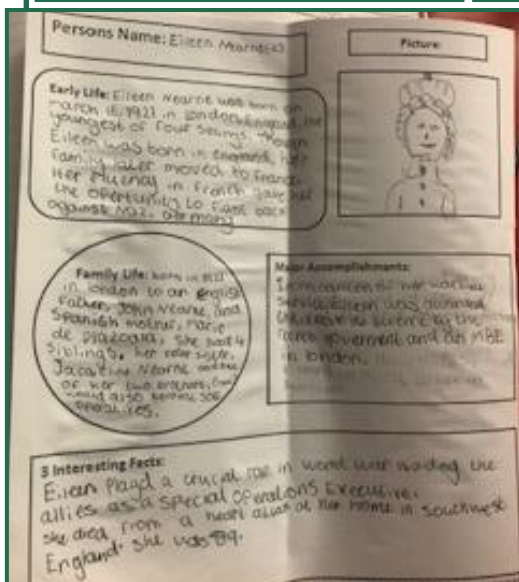 Persons Name: Eileen Nearne
Picture:
Early Life: Eileen Nearne was born on
march 15 1921 in london England, the
youngest of four siblings. Though
Eileen was born in england, her
family later moved to France.
Her fluency in french gave her
the opertunity to fight back
against germany
Family Life: born in 1921
in london to an english
Father, John Nearne, and
Spanish mother, Marie
de plazoala, she had 4
siblings, her older sister,
Jacqueline Nearne and
of her two brothers,
would also become SOE
Major Accomplishments:
her wartime
service Eileen was awarded
by the
french goverment and an MBE
in london.
3 Interesting Facts:
Eileen Playd a crucial role in world war the
allies as a special operations Executive.
she died from a heart at her home in southwest
England. she was 89.